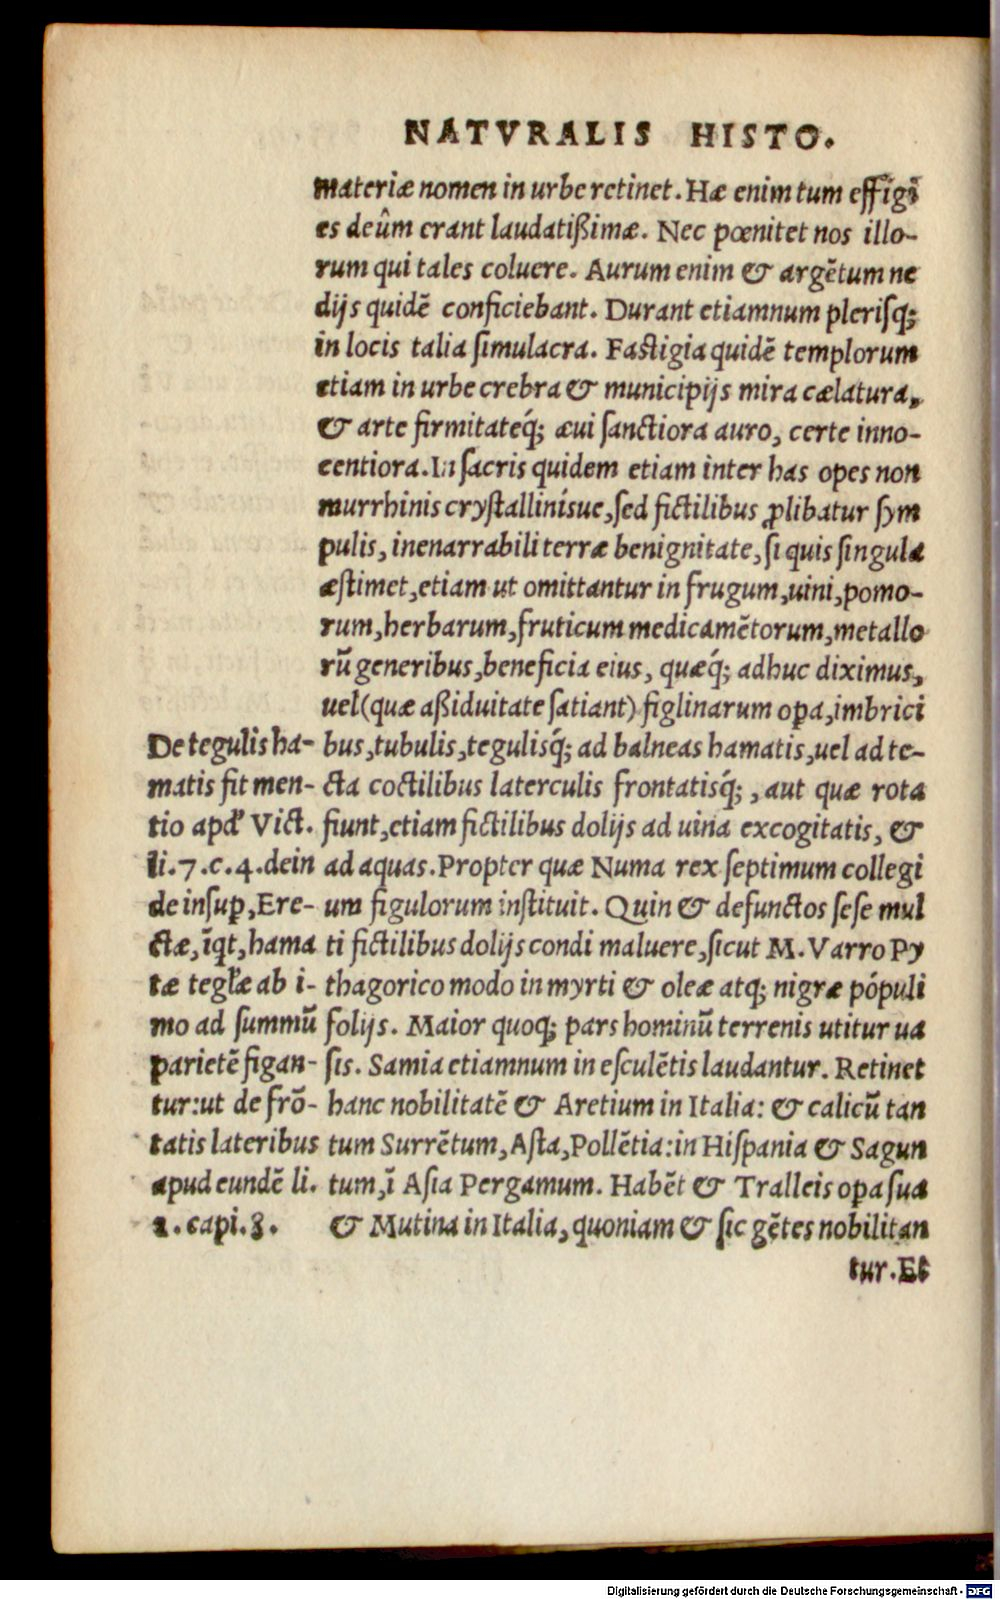 NATVRALIS HISTO.
materiæ nomen in urbe retinet. Hæ enim tum effigi
es deûm erant laudatißimæ. Nec pœnitet nos illo-
rum qui tales coluere. Aurum enim & argẽtum ne
dijs quidẽ conficiebant. Durant etiamnum plerisq;
in locis talia simulacra. Fastigia quidẽ templorum
etiam in urbe crebra & municipijs mira cælatura,
& arte firmitateq́; æui sanctiora auro, certe inno-
centiora. In sacris quidem etiam inter has opes non
murrhinis crystallinísue, sed fictilibus ꝓlibatur sym
pulis, inenarrabili terræ benignitate, si quis singula
æstimet, etiam ut omittantur in frugum, uini, pomo-
rum, herbarum, fruticum medicamẽtorum, metallo
rũ generibus, beneficia eius, quæq́; adhuc diximus,
uel (quæ aßiduitate satiant) figlinarum oꝑa, imbrici
bus, tubulis, tegulisq́; ad balneas hamatis, uel ad te-
cta coctilibus laterculis frontatisq́; , aut quæ rota
fiunt, etiam fictilibus dolijs ad uina excogitatis, &
ad aquas. Propter quæ Numa rex septimum collegi
um figulorum instituit. Quin & defunctos sese mul
ti fictilibus dolijs condi maluere, sicut M. Varro Py
thagorico modo in myrti & oleæ atq; nigræ pópuli
folijs. Maior quoq; pars hominũ terrenis utitur ua
sis. Samia etiamnum in esculẽtis laudantur. Retinet
hanc nobilitatẽ & Aretium in Italia: & calicũ tan
tum Surrẽtum, Asta, Pollẽtia: in Hispania & Sagun
tum, ĩ Asia Pergamum. Habẽt & Tralleis oꝑa sua
& Mutina in Italia, quoniam & sic gẽtes nobilitan
tur. Et
De tegulis ha-
matis fit men-
tio apd' Vict.
li. 7. c. 4. dein
de insuꝑ, Ere-
ctæ, ĩqt, hama
tæ teglæ ab i-
mo ad summũ
parietẽ figan-
tur: ut de frõ-
tatis lateribus
apud eundẽ li.
2. capi. 8.
Digitalisierung gefördert durch die Deutsche Forschungsgemeinschaft - DFG